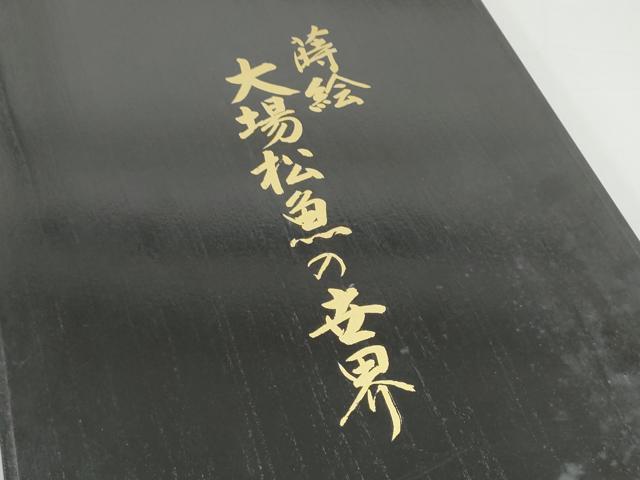 蒔絵
大場松魚の世界